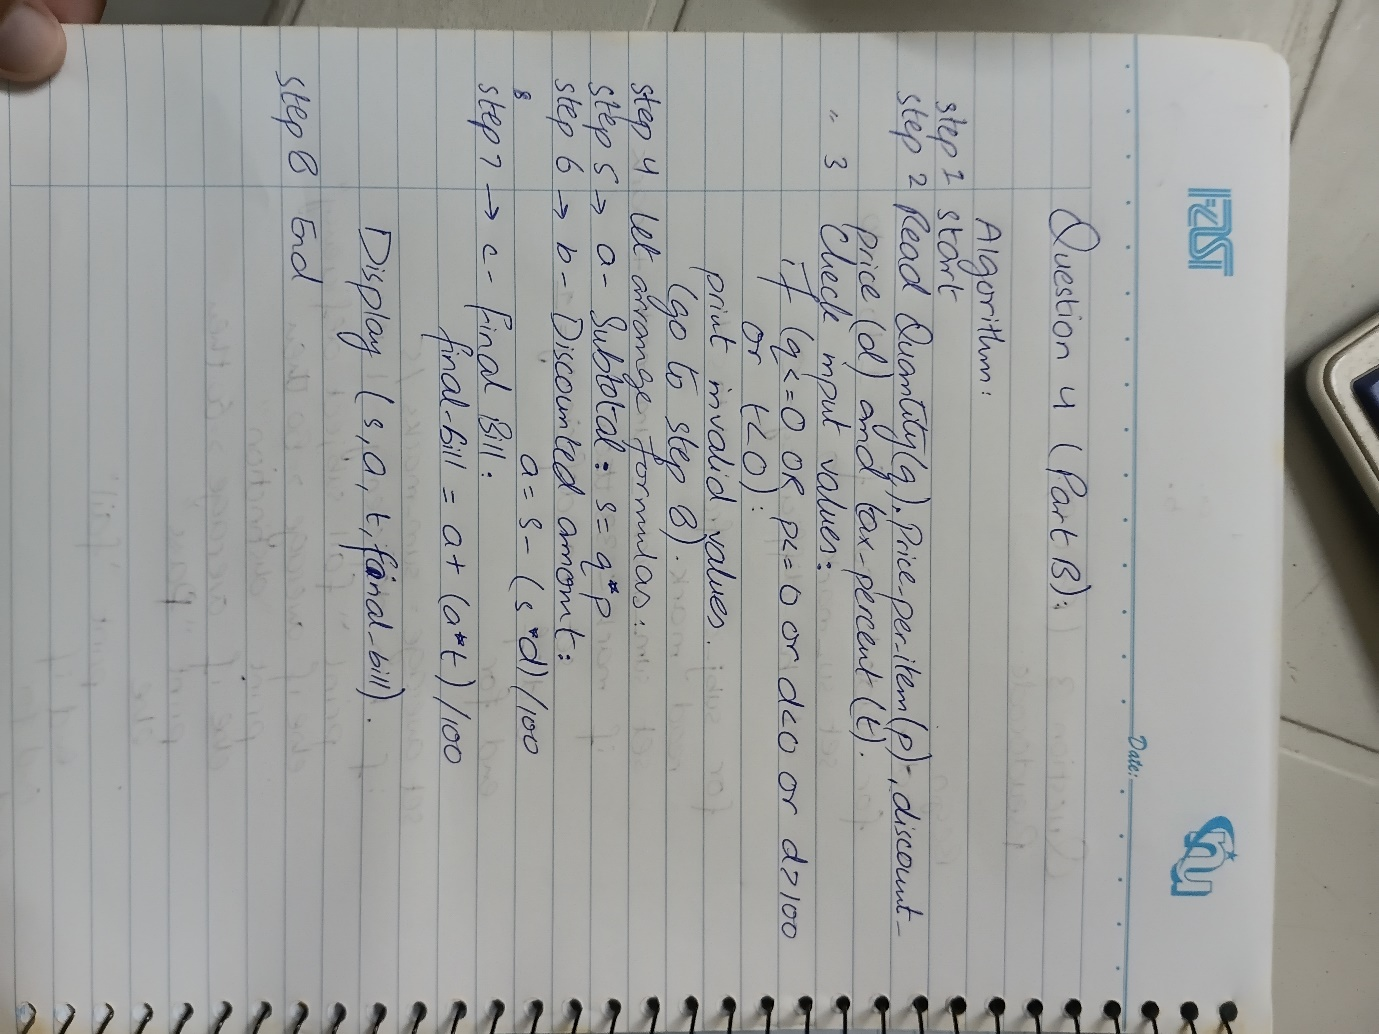 FAST
Date:
Question 4 (Part B):
Algorithm:
step 1 start
step 2 Read Quantity(q), Price-per-item(p), discount-
price (d) and tax-percent (t).
" 3 Check input values:
if (q<=0 OR p<=0 or d<0 or d>100
or t<0):
print invalid values.
(go to step 8).
step 4 let arrange formulas:
step 5 → a- Subtotal: s=q*p
step 6 → b- Discounted amount:
8 a = s - (s*d)/100
step 7 → c- final Bill:
final-bill = a + (a*t)/100
Display (s, a, t, final-bill).
step 8 End